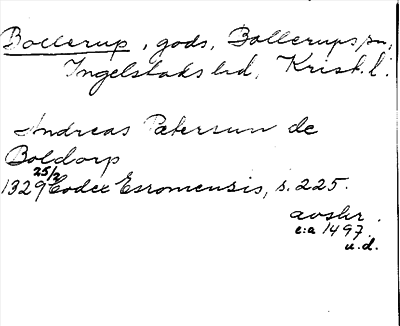 Bollerup, gods, Bollerups sn,
Ingelstads hd, Krist. l.
Andreas Petersun de
Boldorp
1329 25/2 Codex Esromensis, s. 225.
avskr.
c:a 1497.
u.d.